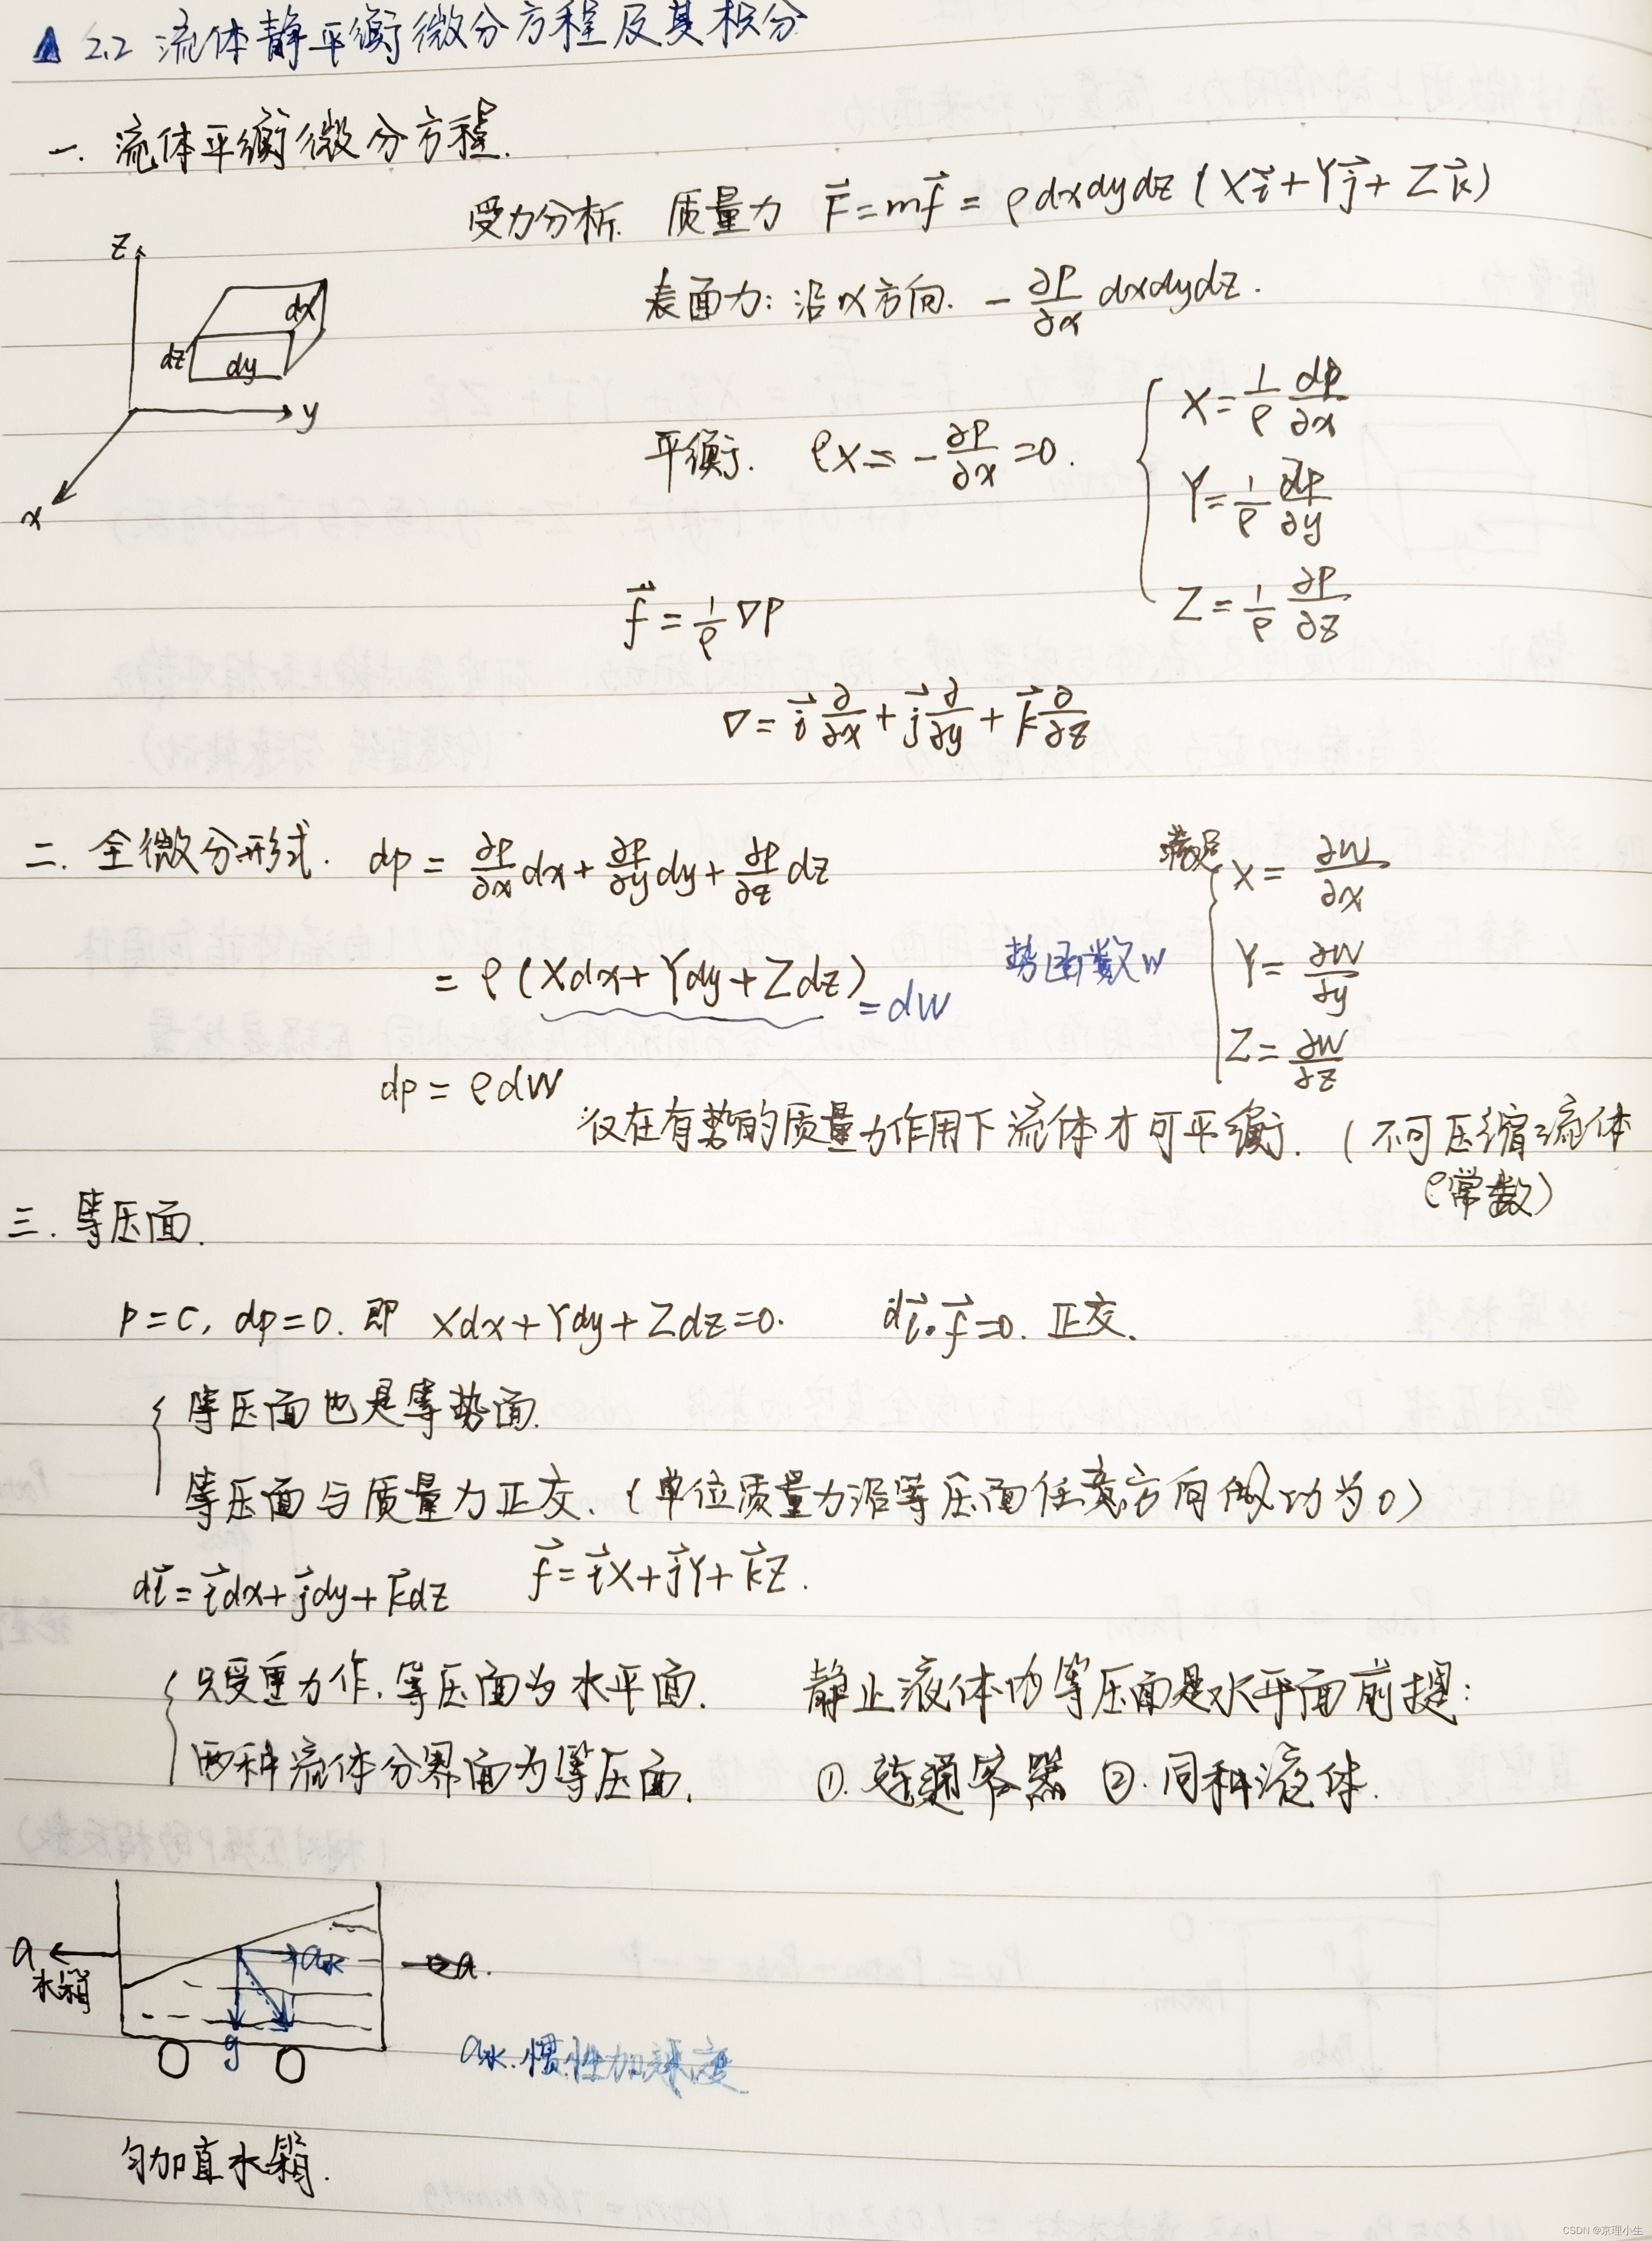 2.2 流体静平衡微分方程及其积分
一. 流体平衡微分方程.
受力分析. 质量力 F⃗=mf⃗ = ρdxdydz (Xi⃗+Yj⃗+Zk⃗)
z
dx
dz
dy
y
x
表面力: 沿x方向. -∂P/∂x dxdydz.
平衡. ρX = -∂P/∂x =0.
X=1/ρ dp/∂x
Y=1/ρ ∂p/∂y
Z=1/ρ ∂P/∂z
f⃗ = 1/ρ ∇P
∇= i⃗ ∂/∂x + j⃗ ∂/∂y + k⃗ ∂/∂z
二. 全微分形式. dp = ∂P/∂x dx + ∂P/∂y dy + ∂P/∂z dz
= ρ (Xdx+Ydy+Zdz) =dW
势函数W
满足
X= ∂W/∂x
Y= ∂W/∂y
Z= ∂W/∂z
dp = ρdW
仅在有势的质量力作用下流体才可平衡. (不可压缩流体
ρ常数)
三. 等压面.
P=C, dp=0. 即 Xdx+Ydy+Zdz=0. dl⃗·f⃗=0. 正交.
等压面也是等势面.
等压面与质量力正交. (单位质量力沿等压面任意方向做功为0)
dl⃗=i⃗dx+j⃗dy+k⃗dz f⃗=i⃗X+j⃗Y+k⃗Z.
只受重力作. 等压面为水平面. 静止液体内等压面是水平面前提:
两种流体分界面为等压面. ①. 连通容器 ②. 同种液体.
a
水箱
a水
a.
g
a水. 惯性加速度
匀加直水箱.
CSDN @京理小生